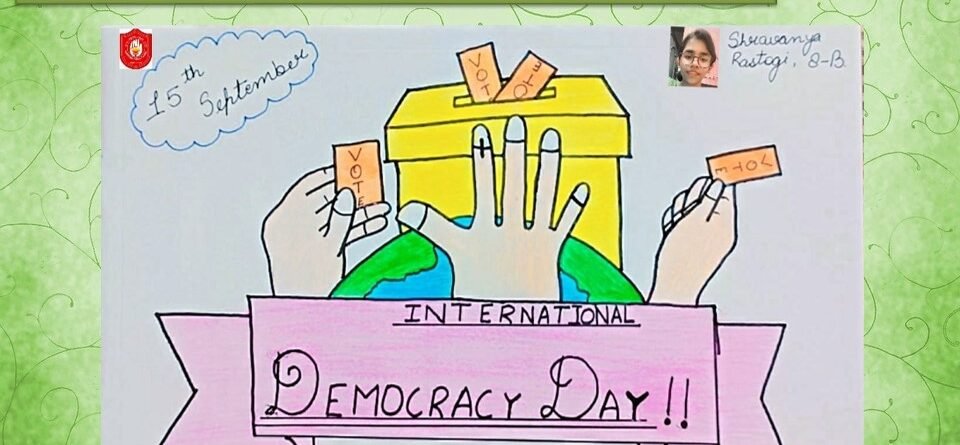 15th
September
Shravanya
Rastogi, 8-B
VOTE
VOTE
VOTE
VOTE
INTERNATIONAL
DEMOCRACY DAY!!